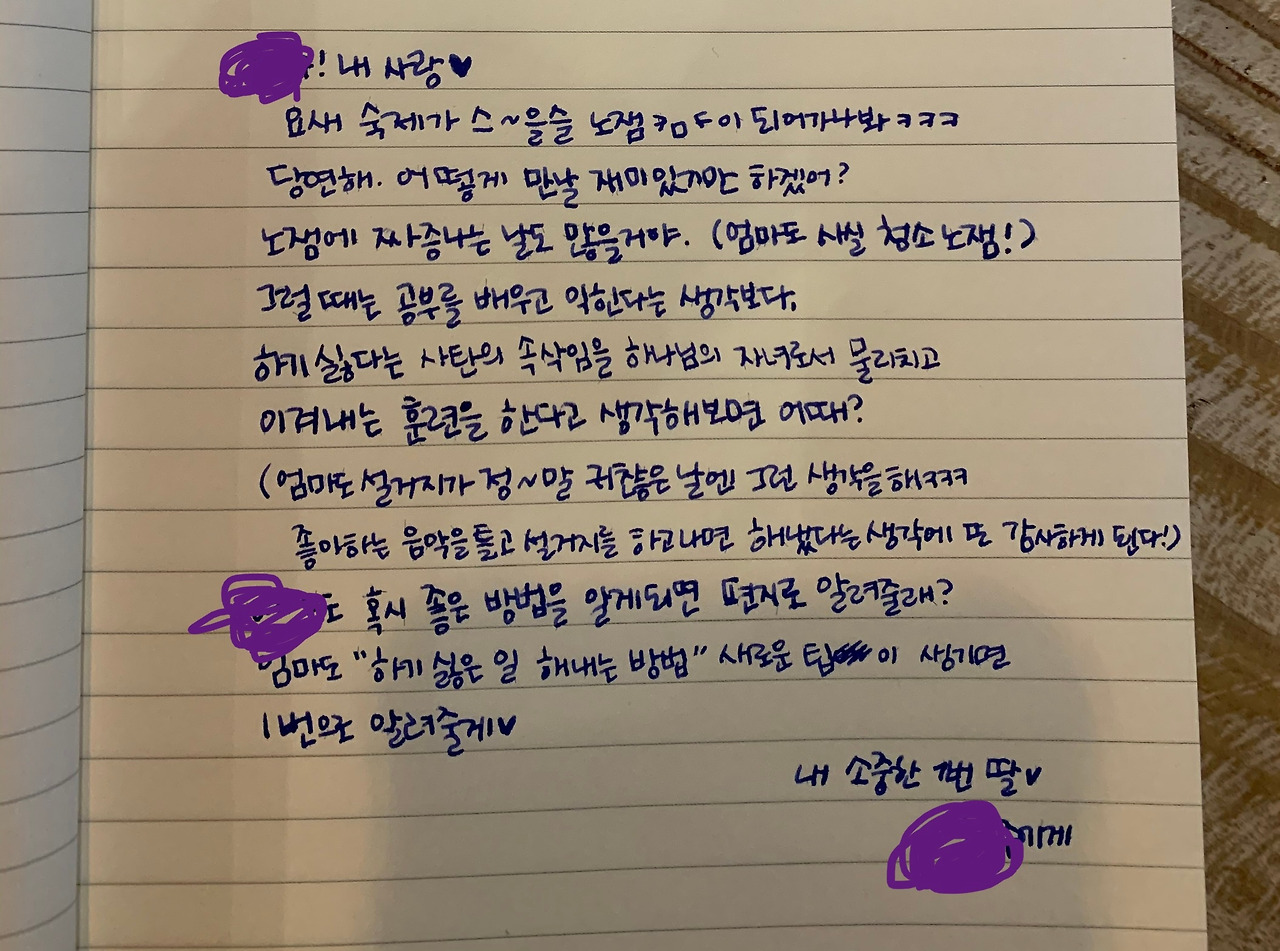 ! 내 사랑♥
요새 숙제가 스~을슬 노잼 되어가나봐 ㅋㅋㅋ
당연해. 어떻게 만날 재미있기만 하겠어?
노잼에 짜증나는 날도 많을거야. (엄마도 사실 청소 노잼!)
그럴 때는 공부를 배우고 익힌다는 생각보다,
하기 싫다는 사탄의 속삭임을 하나님의 자녀로서 물리치고
이겨내는 훈련을 한다고 생각해보면 어때?
(엄마도 설거지가 정~말 귀찮은 날엔 그런 생각을해 ㅋㅋㅋ
좋아하는 음악을 틀고 설거지를 하고나면 해냈다는 생각에 또 감사하게 된다!)
도 혹시 좋은 방법을 알게되면 편지로 알려줄래?
엄마도 "하기 싫은 일 해내는 방법" 새로운 팁이 생기면
1번으로 알려줄게♥
내 소중한 딸♥
에게